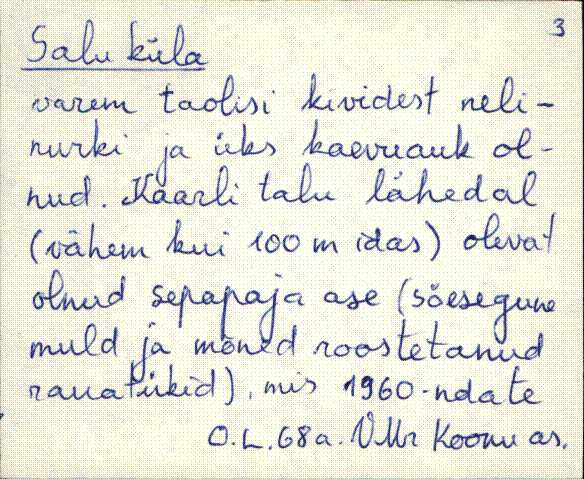 3
Salu küla
varem taolisi kividest neli-
nurki ja üks kaevuauk ol-
nud. Kaarli talu lähedal
(vähem kui 100 m idas) olevat
olnud sepapaja ase (söesegune
muld ja mõned roostetanud
rauatükid), mis 1960-ndate
O.L.68a. VMr Koonu as.